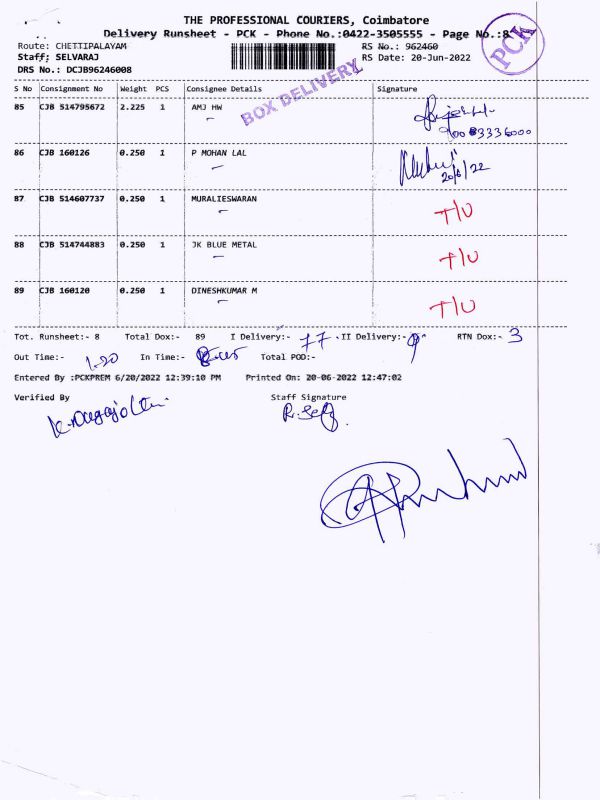 THE PROFESSIONAL COURIERS, Coimbatore
Delivery Runsheet - PCK - Phone No.:0422-3505555 - Page No.:8
PCK
Route: CHETTIPALAYAM RS No.: 962460
Staff: SELVARAJ RS Date: 20-Jun-2022
DRS No.: DCJB96246008
BOX DELIVERY
S No Consignment No Weight PCS Consignee Details Signature
85 CJB 514795672 2.225 1 AMJ HW
86 CJB 160126 0.250 1 P MOHAN LAL
20/6/22
87 CJB 514607737 0.250 1 MURALIESWARAN T/U
88 CJB 514744883 0.250 1 JK BLUE METAL T/U
89 CJB 160120 0.250 1 DINESHKUMAR M T/U
Tot. Runsheet:- 8 Total Dox:- 89 I Delivery:- 77 II Delivery:- 9 RTN Dox:- 3
Out Time:- 1.20 In Time:- Total POD:-
Entered By :PCKPREM 6/20/2022 12:39:10 PM Printed On: 20-06-2022 12:47:02
Verified By Staff Signature